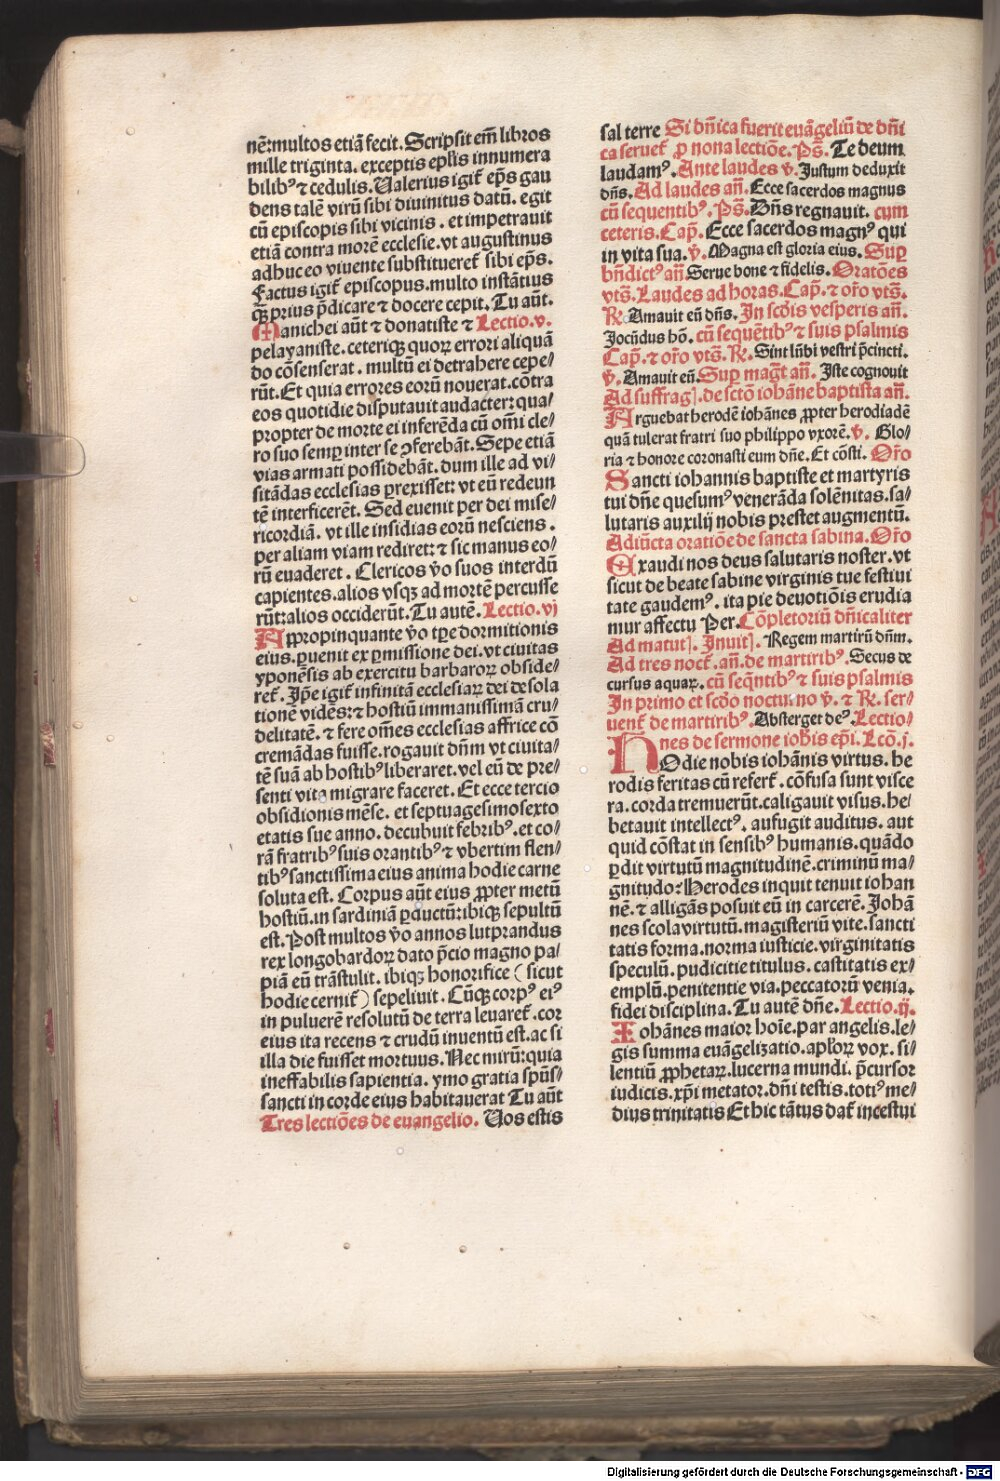 nē:multos etiā fecit. Scripsit em̄ libros
mille triginta. exceptis ep̄lis innumera
bilibꝰ ⁊ cedulis. Valerius igit᷑ ep̄s gau
dens talē virū sibi diuinitus datū. egit
cū episcopis sibi vicinis. et impetrauit
etiā contra morē ecclesie. vt augustinus
adhuc eo viuente substitueret᷑ sibi ep̄s.
Factus igit᷑ episcopus. multo instātius
ꝙ̄ prius p̄dicare ⁊ docere cepit. Tu aūt.
Manichei aūt ⁊ donatiste ⁊ Lectio.v.
pelayaniste. ceteriqꝫ quoꝝ errori aliquā
do cōsenserat. multū ei detrahere cepe⸗
rūt. Et quia errores eorū nouerat. cōtra
eos quotidie disputauit audacter: qua⸗
propter de morte ei inferēda cū om̄i cle⸗
ro suo semꝑ inter se ꝯferebāt. Sepe etiā
vias armati possidebāt. dum ille ad vi⸗
sitādas ecclesias ꝑrexisset: vt eū redeun
tē interficerēt. Sed euenit per dei mise⸗
ricordiā. vt ille insidias eorū nesciens.
per aliam viam rediret: ⁊ sic manus eo⸗
rū euaderet. Clericos v̄o suos interdū
capientes. alios vsqꝫ ad mortē percusse
rūt: alios occiderūt. Tu autē. Lectio.vj
Appropinquante v̄o tꝑe dormitionis
eius. ꝑuenit ex ꝑmissione dei. vt ciuitas
yponēsis ab exercitu barbaroꝝ obside⸗
ret᷑. Ip̄e igit᷑ infinitā ecclesiaꝝ dei desola
tionē vidēs: ⁊ hostiū immanissimā cru⸗
delitatē. ⁊ fere om̄es ecclesias affrice cō
cremādas fuisse. rogauit dn̄m vt ciuita⸗
tē suā ab hostibꝰ liberaret. vel eū de pre⸗
senti vita migrare faceret. Et ecce tercio
obsidionis mēse. et septuagesimosexto
etatis sue anno. decubuit febribꝰ. et co⸗
rā fratribꝰ suis orantibꝰ ⁊ vbertim flen⸗
tibꝰ sanctissima eius anima hodie carne
soluta est. Corpus aūt eius ꝓpter metū
hostiū. in sardiniā ꝑductū: ibiqꝫ sepultū
est. Post multos v̄o annos lutprandus
rex longobardoꝝ dato p̄cio magno pa⸗
piā eū trāstulit. ibiqꝫ honorifice (sicut
hodie cernit᷑) sepeliuit. Cūqꝫ corpꝰ eiꝰ
in puluerē resolutū de terra leuaret᷑. cor
eius ita recens ⁊ crudū inuentū est. ac si
illa die fuisset mortuus. Nec mirū: quia
ineffabilis sapientia. ymo gratia sp̄ūs⸗
sancti in corde eius habitauerat Tu aūt
Tres lectiōes de euangelio. Vos estis
sal terre Si dn̄ica fuerit euāgeliū de dn̄i
ca seruet᷑ ꝓ nona lectiōe. Ps̄. Te deum
laudamꝰ. Ante laudes v̄. Justum deduxit
dn̄s. Ad laudes an̄. Ecce sacerdos magnus
cū sequentibꝰ. Ps̄. Dn̄s regnauit. cum
ceteris. Cap̄. Ecce sacerdos magnꝰ qui
in vita sua. v̄. Magna est gloria eius. Suꝑ
bn̄dictꝰ an̄ Serue bone ⁊ fidelis. Oratōes
vts̄. Laudes ad horas. Cap̄. ⁊ or̄o vts̄.
R̄. Amauit eū dn̄s. In scd̄is vesperis an̄.
Jocūdus hō. cū sequētibꝰ ⁊ suis psalmis
Cap̄. ⁊ or̄o vts̄. R̄. Sint lūbi vestri p̄cincti.
v̄. Amauit eū. Suꝑ magt᷑ an̄. Iste cognouit
Ad suffragꝭ. de sctō iohāne baptista an̄.
Arguebat herodē iohānes ꝓpter herodiadē
quā tulerat fratri suo philippo vxorē. v̄. Glo⸗
ria ⁊ honore coronasti eum dn̄e. Et cōsti. Or̄o
Sancti iohannis baptiste et martyris
tui dn̄e quesumꝰ venerāda solēnitas. sa⸗
lutaris auxilij nobis prestet augmentū.
Adiūcta oratiōe de sancta sabina. Or̄o
Exaudi nos deus salutaris noster. vt
sicut de beate sabine virginis tue festiui
tate gaudemꝰ. ita pie deuotiōis erudia
mur affectu Per. Cōpletoriū dn̄icaliter
Ad matutꝭ. Inuitꝭ. Regem martirū dn̄m.
Ad tres noct᷑. an̄. de martiribꝰ. Secus de
cursus aquaꝝ. cū seqn̄tibꝰ ⁊ suis psalmis
In primo et scd̄o nocturno v̄. ⁊ R̄. ser⸗
uent᷑ de martiribꝰ. Absterget deꝰ. Lectio⸗
nes de sermone ioh̄is ep̄i. Lcō.j.
HOdie nobis iohānis virtus. he
rodis feritas cū refert᷑. cōfusa sunt visce
ra. corda tremuerūt. caligauit visus. he⸗
betauit intellectꝰ. aufugit auditus. aut
quid cōstat in sensibꝰ humanis. quādo
ꝑdit virtutū magnitudinē. criminū ma⸗
gnitudo? Herodes inquit tenuit iohan
nē. ⁊ alligās posuit eū in carcerē. Johā
nes scola virtutū. magisteriū vite. sancti
tatis forma. norma iusticie. virginitatis
speculū. pudicitie titulus. castitatis ex⸗
emplū. penitentie via. peccatorū venia.
fidei disciplina. Tu autē dn̄e. Lectio.ij.
Iohānes maior hoīe. par angelis. le⸗
gis summa euāgelizatio. apl̄oꝝ vox. si⸗
lentiū ꝓphetaꝝ. lucerna mundi. p̄cursor
iudicis. xp̄i metator. dn̄i testis. totiꝰ me⸗
dius trinitatis Et hic tātus dat᷑ incestui
Digitalisierung gefördert durch die Deutsche Forschungsgemeinschaft - DFG